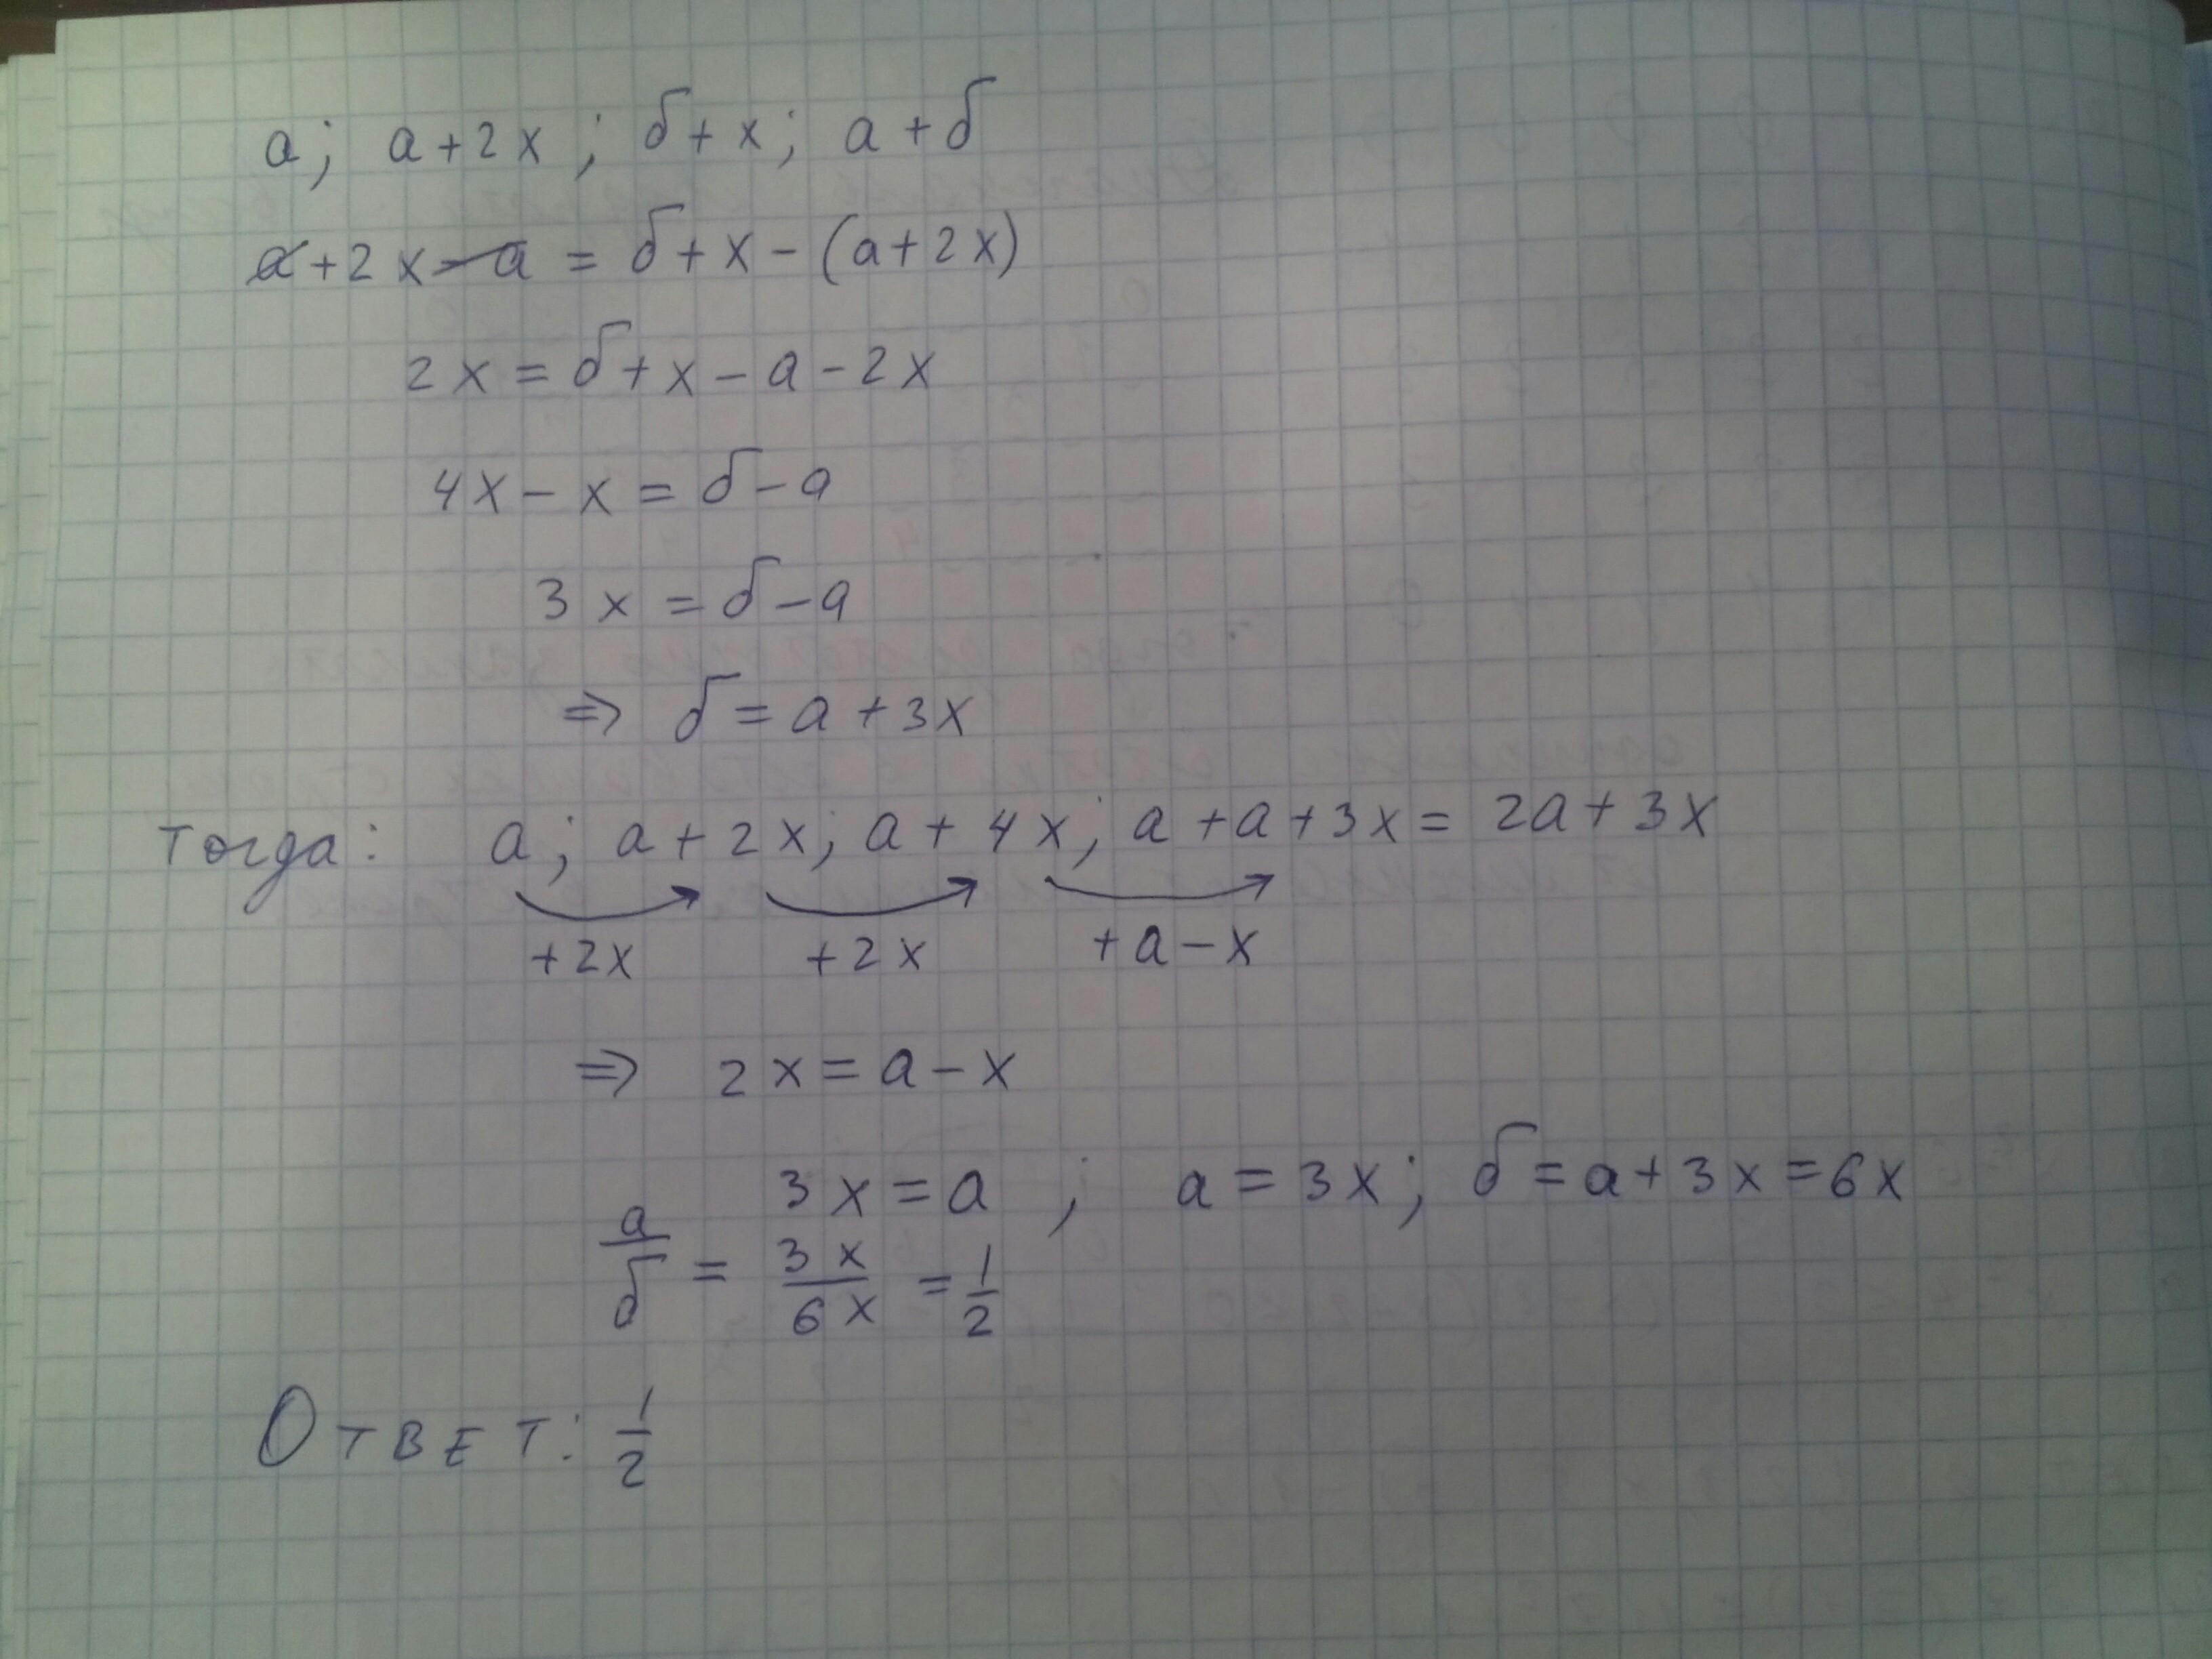 a; a+2x; б+x; a+б
a+2x-a = б+x-(a+2x)
2x = б+x-a-2x
4x-x = б-a
3x = б-a
⇒ б = a+3x
Тогда: a; a+2x; a+4x; a+a+3x = 2a+3x
+2x +2x +a-x
⇒ 2x = a-x
3x = a ; a = 3x; б = a+3x = 6x
a/б = 3x/6x = 1/2
Ответ: 1/2